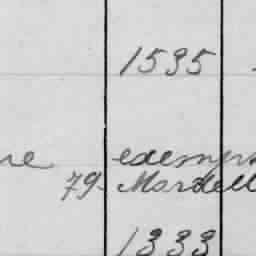 1535
re exemp
79. Mardell
1333